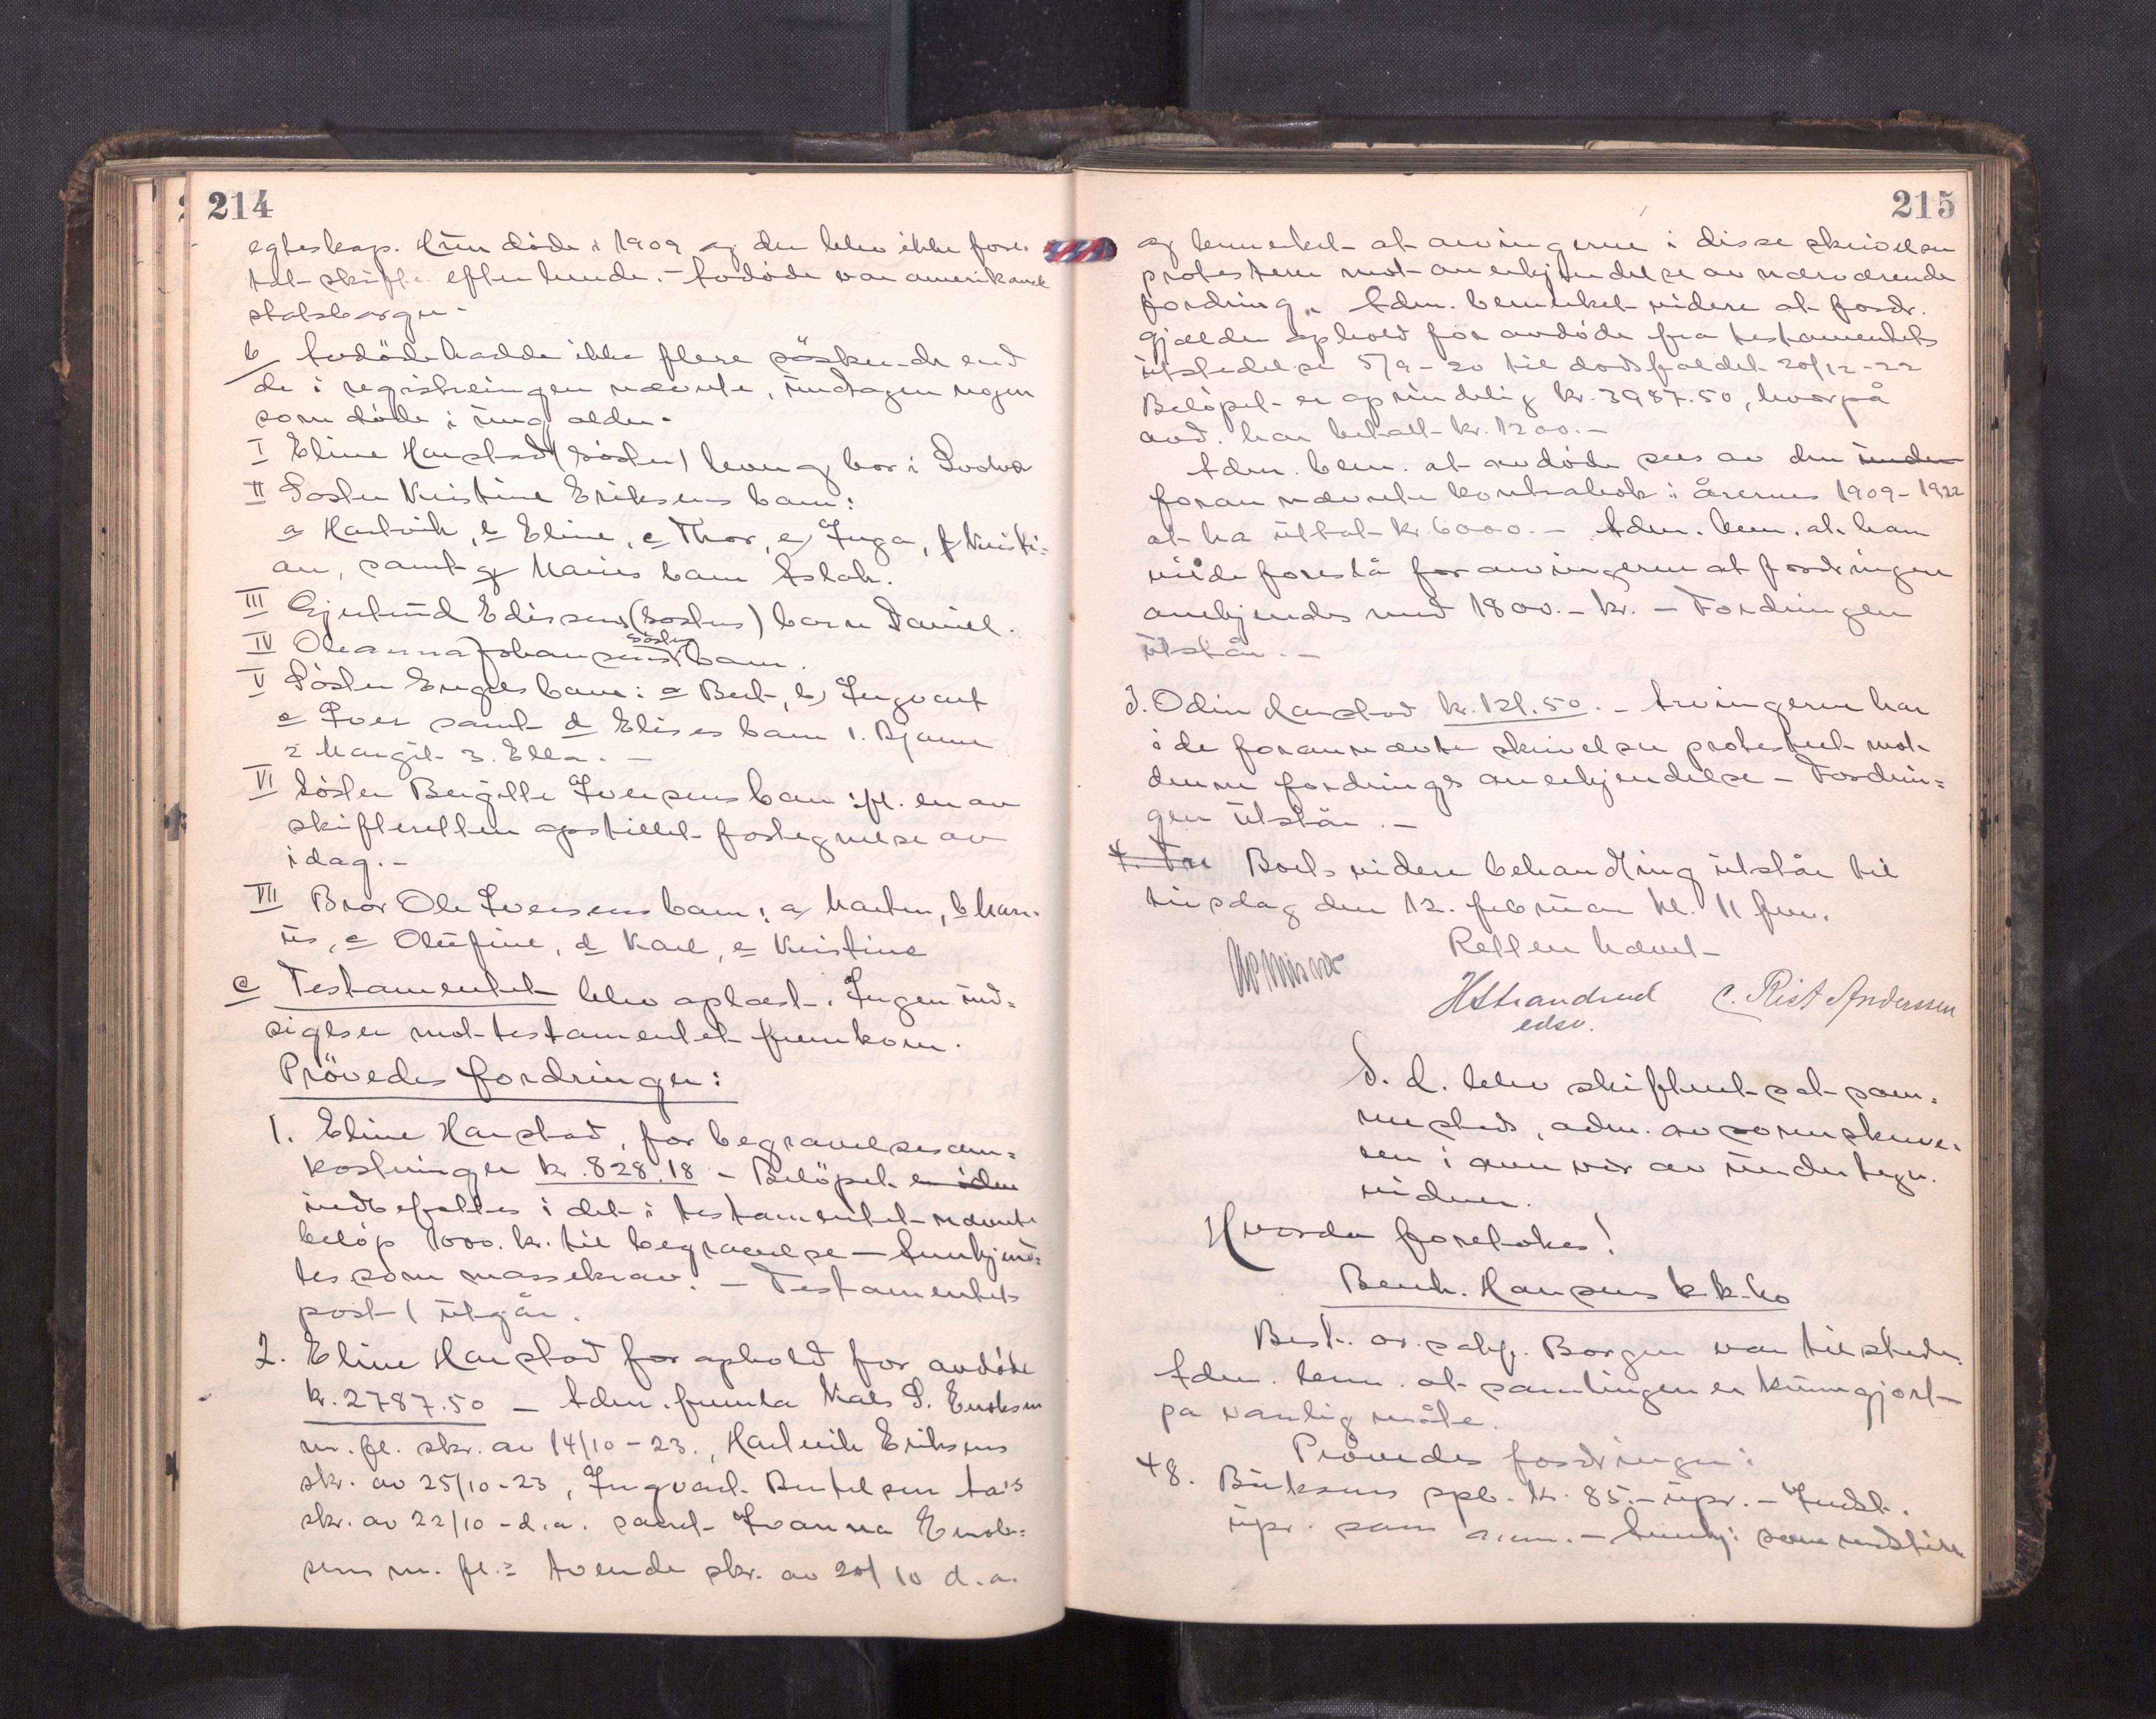 214
egteskap. Hun døde i 1909 og der blev ikke fore-
tat skifte efter hende. - Avdøde var amerikansk
statsborger -
b Avdøde hadde ikke flere søsken de end
de i registreringen nævnte, undtagen nogen
som døde i ung alder.
I Eline Harstad (søster) lever og bor i
II Søster Kristine Eriksens barn:
a Hartvik, b Eline, c Thor, e) Inga, f Kristi=
an, samt g Maries barn Aslak.
III Gjertrud Edissens (søsters) barn Daniel.
IV Oleanna Johansens søster barn.
V Søster Engels barn: a Bert, b) Ingvart
c Iver samt d Elises barn 1. Bjarne
2 Margit 3. Ella. -
VI Søster Bergitte Iversens barn: fl. en av
skifteretten opstillet fortegnelse av
idag. -
VII Bror Ole Iversens barn: a Marten, b Mari-
us, c Olufine, d Karl, e Kristine
c Testamentet blev oplæst. Ingen ind=
sigelser mot testamentet fremkom.
Prövedes fordringer:
1. Eline Harstad, for begravelsesom=
kostninger kr. 828.18 - Beløpet er iden
indbefattes i det i testamentet nævnte
beløp 1000. kr. til begravelse - Anerkjend=
tes som massekrav. - Testamentets
post 1 utgår.
2. Eline Harstad for ophold for avdøde
kr. 2787.50 - Adm. fremla Mats S. Enoksen
m. fl. skr. av 14/10-23., Hartvik Eriksens
skr. av 25/10-23, Ingvart Bertelsen
skr. av 22/10 - d.a. samt Ivanna Enok=
sens m. fl.s tvende skr. av 20/10 d.a.
215
og bemerket at arvingerne i disse skrivelser
protesterer mot anerkjendelse av nærværende
fordring. Adm. bemerket videre at fordr.
gjælder ophold for avdøde fra testamentets
utstedelse 5/9-20 til dødsfaldet 20/12-22
Beløpet er oprindelig kr. 3987.50, hvorpå
avd. har betalt kr. 1200. -
Adm. bem. at avdøde sees av den under
foran nævnte kontrabok i årerne 1909-1922
at ha uttat kr. 6000. - Adm. bem. at han
vilde forestå for arvingerne at fordringen
anerkjendes med 1800. - kr. - Fordringen
utstår. -
3. Odin Harstad kr. 121.50. - Arvingerne har
i de forannævnte skrivelser protestert mot
denne fordrings anerkjendelse - Fordrin=
gen utstår. -
4. Fre Boets videre behandling utstår til
tirsdag den 12. februar kl. 11 fm.
Retten hævet -
HStrandrud
edsv.
C. Rist Anderssen
S. d. blev skifteret sat sam=
mesteds, adm. av sorenskrive-
ren i nærvær av undertegn.
vidner.
Hvorda foretokes!
Bernh. Hansens k.k.bo
Best. or. sakf. Borgen var tilstede.
Adm. bem. at samlingen er kunngjort
på vanlig måte.
Prövedes fordringer:
48. kr. 85.- upr. - Indst.
upr. som anm. - Anerkj: